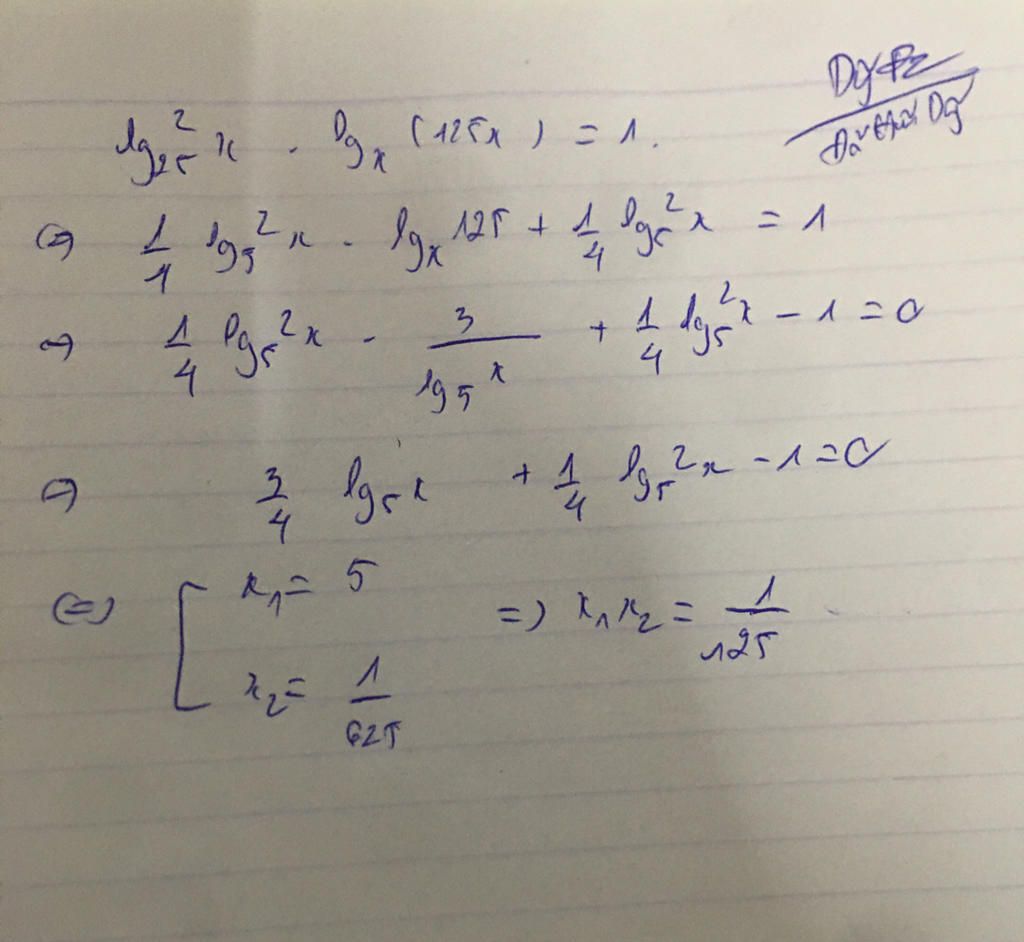 lg₂₅² x . lgₓ (125x) = 1.
⇔ 1/4 lg₅² x . lgₓ 125 + 1/4 lg₅² x = 1
⇔ 1/4 lg₅² x . 3/lg₅ x + 1/4 lg₅² x - 1 = 0
⇔ 3/4 lg₅ x + 1/4 lg₅² x - 1 = 0
⇔ [ x₁ = 5 => x₁x₂ = 1/125
x₂ = 1/625